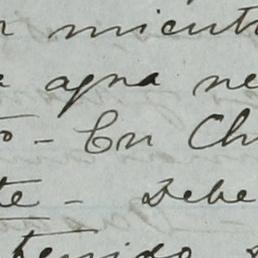 mientr
agna ne
to - En Ch
te - Debe
tenido